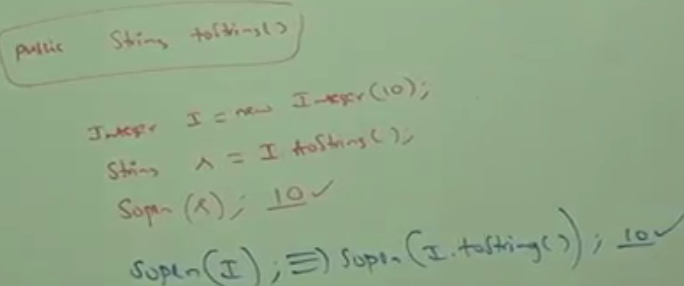 public String toString()
Integer I = new Integer(10);
String s = I.toString();
Sopln(s); 10 ✓
Sopln(I); ≡) Sopln(I.toString()); 10 ✓